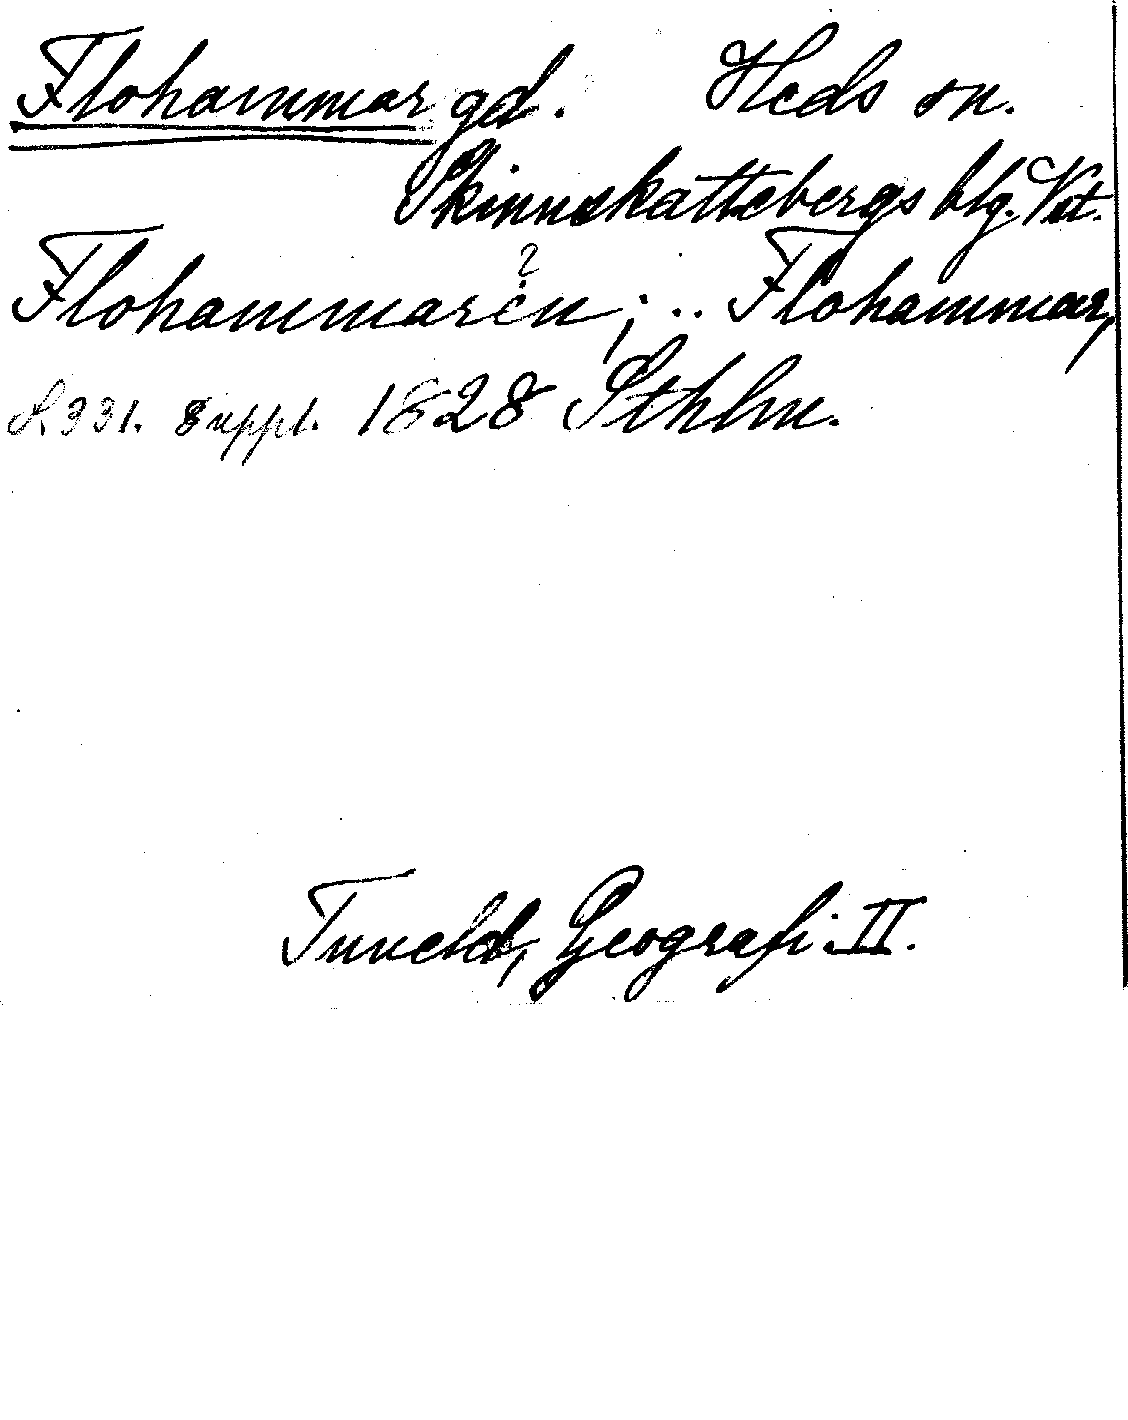 Flohammar gd. Heds sn.
Skinnskattebergs blg. Vst.
Flohammarën ?; .. Flohammar,
s. 331. Suppl. 1828 Sthlm.
Tuneld, Geografi II.